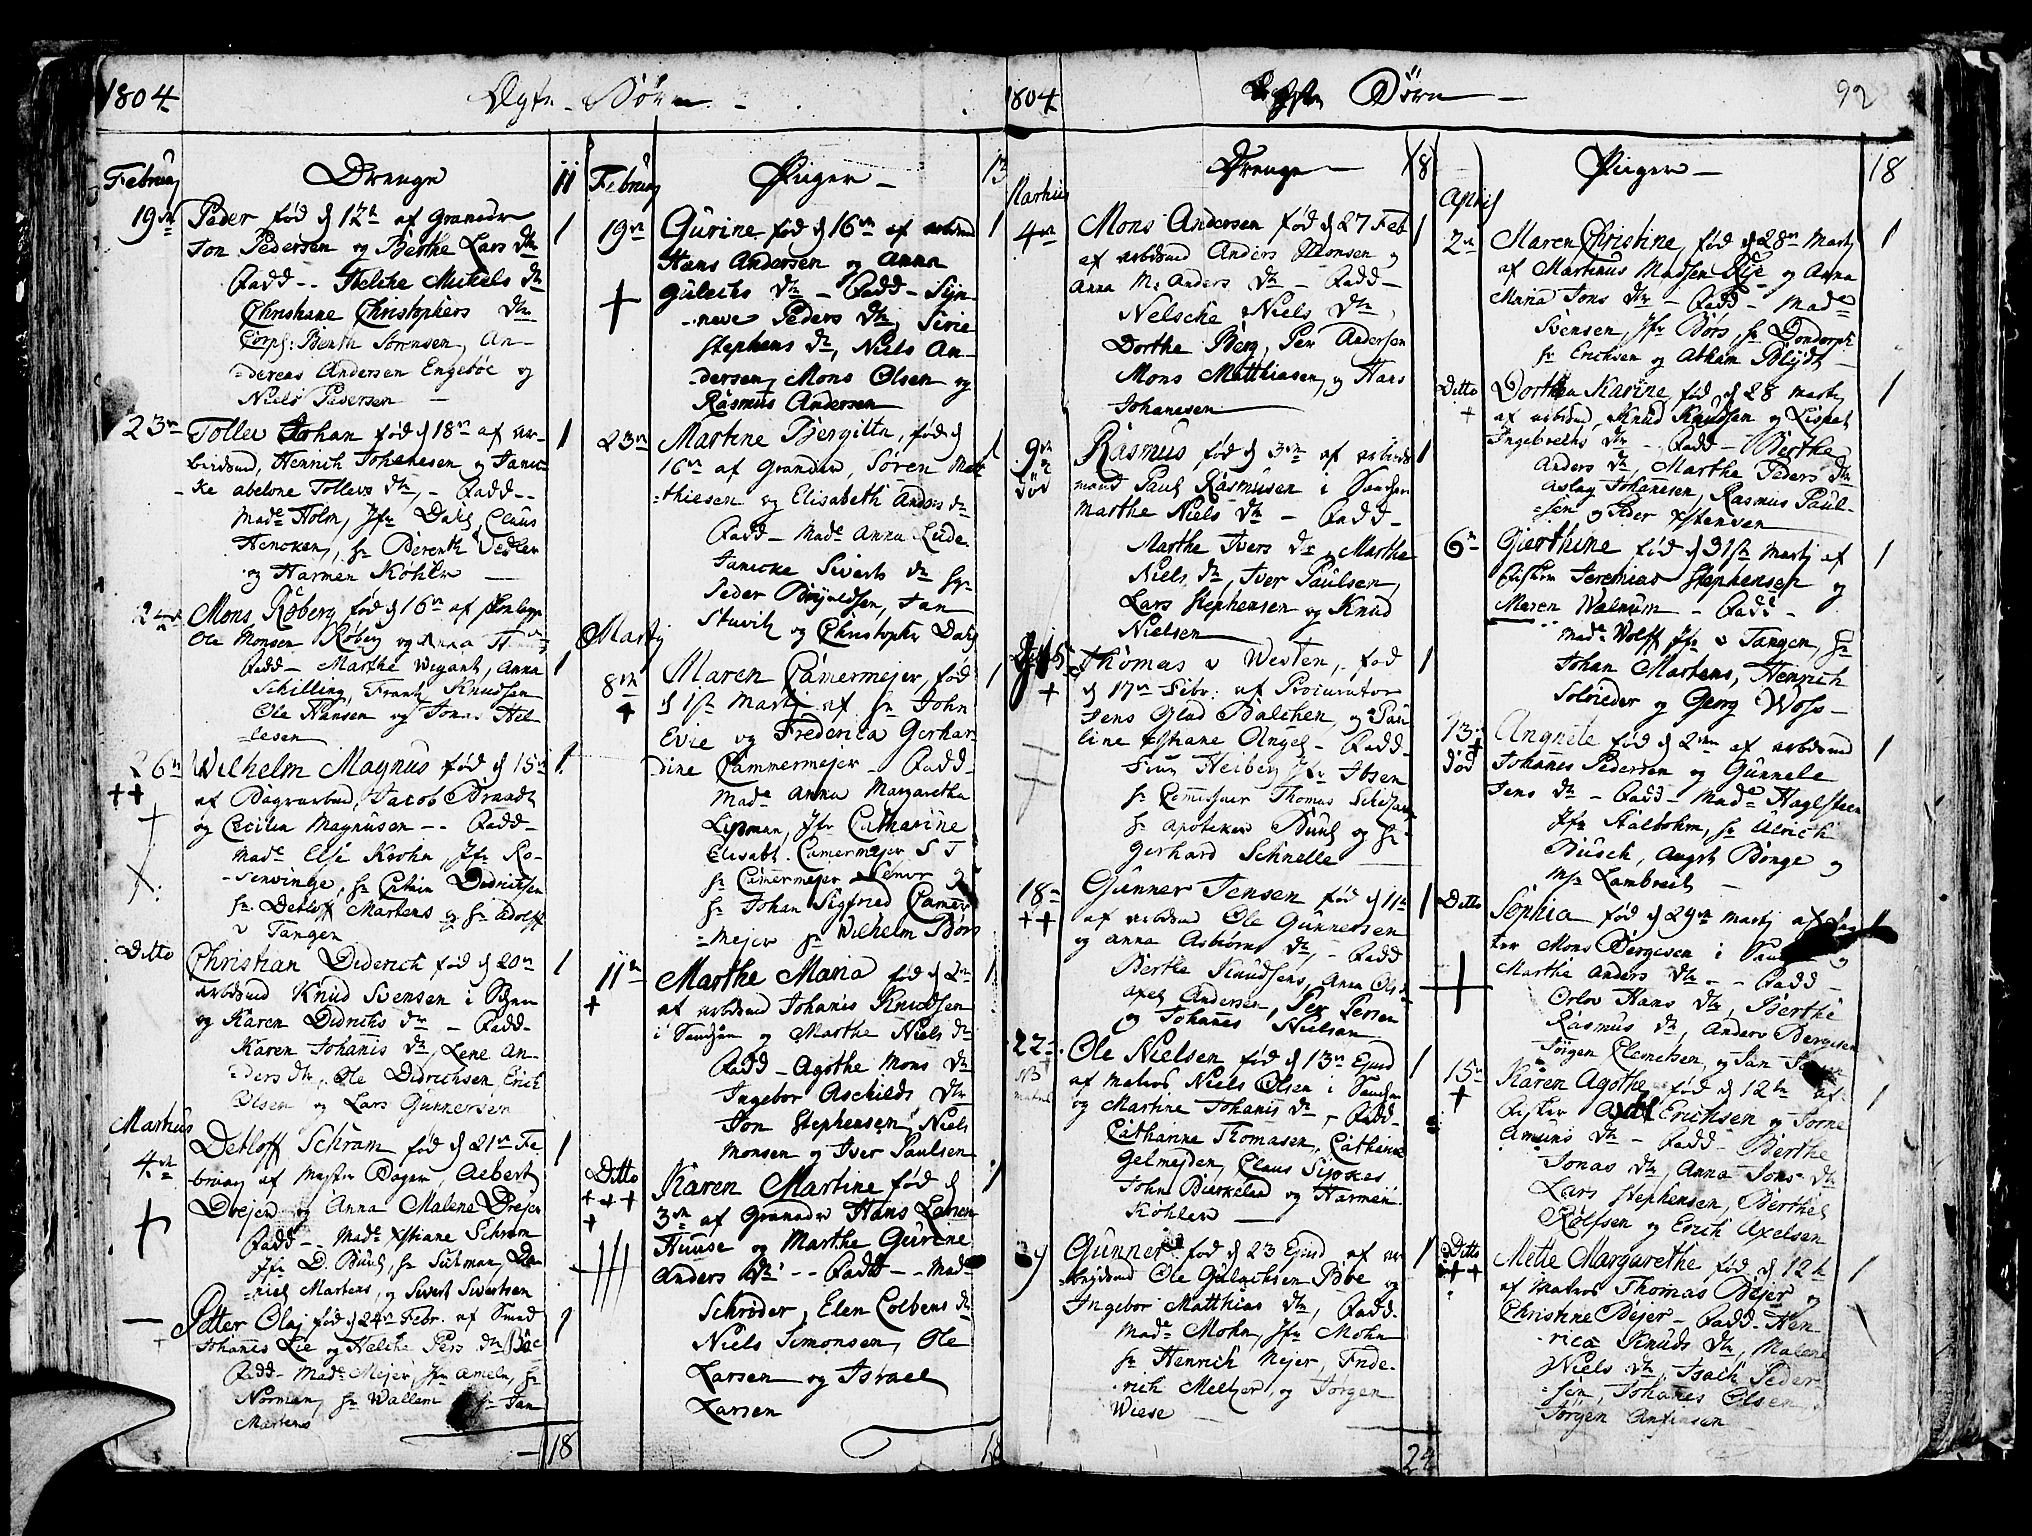 1804
Ægte Børn
Februarj
Drenge
11
19de
Peder fød d 12te af Granadr
Jon Pedersen og Berthe Lars Dtr
1
Fadd -- Helche Mikels Dr
Christiane Christophers Dtr
Corpl: Benth Sørensen, An-
=dereas Andersen Engebøe og
Niels Pedersen
23de
Tollev Johan fød d 18de af Ar-
1
beidsmd, Henrich Johanesen og Jani-
ke abelone Tollevs dtr, - Fadd --
Made Holm, Jfr Dahl, Claus
Hencken, Hr Berenth Vedler
og Harmen Köhler
24de
Mons Røberg fød d 16de af
Ole Monsen Røberg og Anna
1
Fadd - Marthe Wigant, Anna
Schilling, Frantz Knudsen
Ole Hansen og Jonas Hel-
=lesen
26de
++
Wilhelm Magnus fød d 15de
1
af Bagersvend, Jacob Brandt
og Cecilia Magnusen -- Fadd -
Made Else Krohn, Jfr Ro-
=senvinge, Hr Didrichsen
Hr Detloff Martens og Hr Adolff
v Tangen
Ditto
Christian Diderich fød d 20de
1
arbdsmd Knud Svensen i
og Karen Didrichs dr - Fadd -
Karen Johanis dr, Lene An-
=ders dtr, Ole Didrichsen, Erich
Olsen og Lars Gunnersen
Martius
4de
+
Detloff Schram fød d 21de Fe
1
bruarj af Mester Bager, Aelbert
Drejer og Anna Malene Drejer
Fadd -- Made Xstiane Schram
Jfr D. Buch, Hr Sutmar, Da-
=niel Martens, og Sivert Sivertsen
Petter Olaj fød d 24de Febr. af Smed
1
Johanes Lie og Helche Pers Dtr
Fadd - Made Mejer, Jfr Ameln, Hr
Norman, Hr Wallem Hr Jan
Martens
18
Februarj
Piger
13
19de
+
Gurine fød d 16de af arbdmd
1
Hans Andersen og Anna
Gulechs Dtr - Fadd - Syn-
=neve Peders Dtr, Sirie
Stephens dr, Niels An-
=dersen, Mons Olsen og
Rasmus Andersen
23de
Martine Bergitta, fød d
1
16de af Granadr, Søren Mat
=thiesen og Elisabeth Anders dr
Fadd - Made Anna Lude
Janicke Siverts dr Hr
Peder Jan
Stuwitz og Christopher Dahl
Martij
8de
+
Maren Camermejer, fød
1
d 1ste Martij af Hr John
Evie og Frederica Gerhar-
dine Cammermejer - Fadd -
Made Anna Margaretha
Lipman, Jfr Catharine
Elisabt. Camermejer S T
Hr Camermejer Senior og
Hr Johan Sigfried Camer
=mejer Hr Wilhelm Børs
11te
+
Marthe Maria fød d 2de
1
af arbdsmd Johanis Knudsen
i Sandviken og Marthe Niels Dr
Fadd - Agothe Mons Dr
Ingebor Aschilds Dtr
Jon Stephensen Niels
Monsen og Iver Paulsen
Ditto
+++
+
Karen Martine fød d
1
3de af Granadr Hans Larsen
Huuse og Marthe Gurine
Anders Dtr -- Fadd -- Made
Schrøder, Elen Colbens dr
Niels Simonsen, Ole
Larsen og Israel
Larsen
18
1804
Ægte Børn
92
Martius
Drenge
18
4de
Mons Andersen fød d 27 Feb
1
af arbdsmd Anders Monsen og
Anna M: Anders Dtr - Fadd -
Nelsche Niels Dtr
Dorthe Berg, Per Andersen
Mons Matthiasen, og Hans
Johanesen
9de
død
Rasmus fød d 3de af arbeids
1
mand Paul Rasmusen i Sandvn
Marthe Niels Dtr - Fadd -
Marthe Ivers Dr, Marthe
Niels Dr, Iver Paulsen,
Lars Stephensen og Knud
Nielsen
15
+
Thomas v Westen, fød
1
d 17de Febr: af Procurator
Jens Glad Balchen, og Pau-
line Xstiane Angel - Fadd -
Frue Heiberg Jfr Ibsen
Hr Thomas
Hr Apoteker Buch og Hr
Gerhard Schnelle
18de
++
Gunner Jensen fød d 11te
1
af arbdsmd Ole Gunnersen
og Anna Asbiørns Dr, - Fadd
Berthe Knudsens, Anna Ols dr
Axel Andersen, Per Persen
og Johannes Nielsen
22de
NB
Ole Nielsen fød d 13de Ejusd
1
af Matros Niels Olsen i Sandvn
og Martine Johanis dr, - Fadd -
Catharine Thomasen, Cathrine
Gelmejden, Claus Sipkes
John Bierkeland og Harmen
Köhler
Gunner fød d 23 Ejusd af ar
1
beidsmd Ole Gulachsen Boe og
Ingebor Matthias Dtr, Fadd -
Made Mohn, Jfr Mohn
Hr Henrich Mejer, Frede-
rich Meltzer, og Jørgen
Wiese
24
April
Piger
18
2de
Maren Christine, fød d 28de Martij
1
af Martinus Madsen Rye og Anna
Maria Jons Dtr - Fadd - Made
Svensen, Jfr Børs, Hr Dondorph
Hr Erichsen og Abham Blijdt
Ditto
+
Dorthea Karine, fød d 28 Martij
1
af arbdsmd, Knud Knudsen og Lispet
Ingebrechts Dr - Fadd - Berthe
Anders dr, Marthe Peders Dtr
Aslag Johannesen, Rasmus Paul-
=sen og Peder Xstensen
6te
Gierthine fød d 31ste Martij af
1
Fisker Jeremias Stephensen og
Maren Walnum - Fadd -
Made Wolff Jfr v Tangen, Hr
Johan Martens, Henrich
Solvieder og Georg Woss -
13de
+
død
Angnete fød d 2den af arbdsmd
1
Johanes Pedersen og Gunnele
Jens Dr - Fadd - Made Haglsteen
Jfr Stalbohm, Hr Ulrich
Büsch, Augst Bønge og
Mr Lambrecht
Ditto
+
Sophia fød d 29de Martij af
ter Mons Børgesen i
Marthe Anders Dtr -- Fadd -
Orlov Hans Dtr, Berthe
Rasmus dr, Anders Bergesen
Jørgen Clemetsen, og Jan
15de
+
Karen Agothe fød d 12te af
1
Fisker Axel Erichsen og Torne
Amunds Dr - Fadd - Berthe
Jonas dr, Anna Jons Dr
Lars Stephensen, Berthel
Rolfsen og Erich Axelsen
Ditto
+++
Mette Margarethe fød d 12te
1
af Matros Thomas Bejer og
Christine Bejer - Fadd - Hen-
rica Knuds Dtr, Malene
Niels dr - Isach Peder-
=sen, Johanes Olsen,
Jørgen Anfinsen